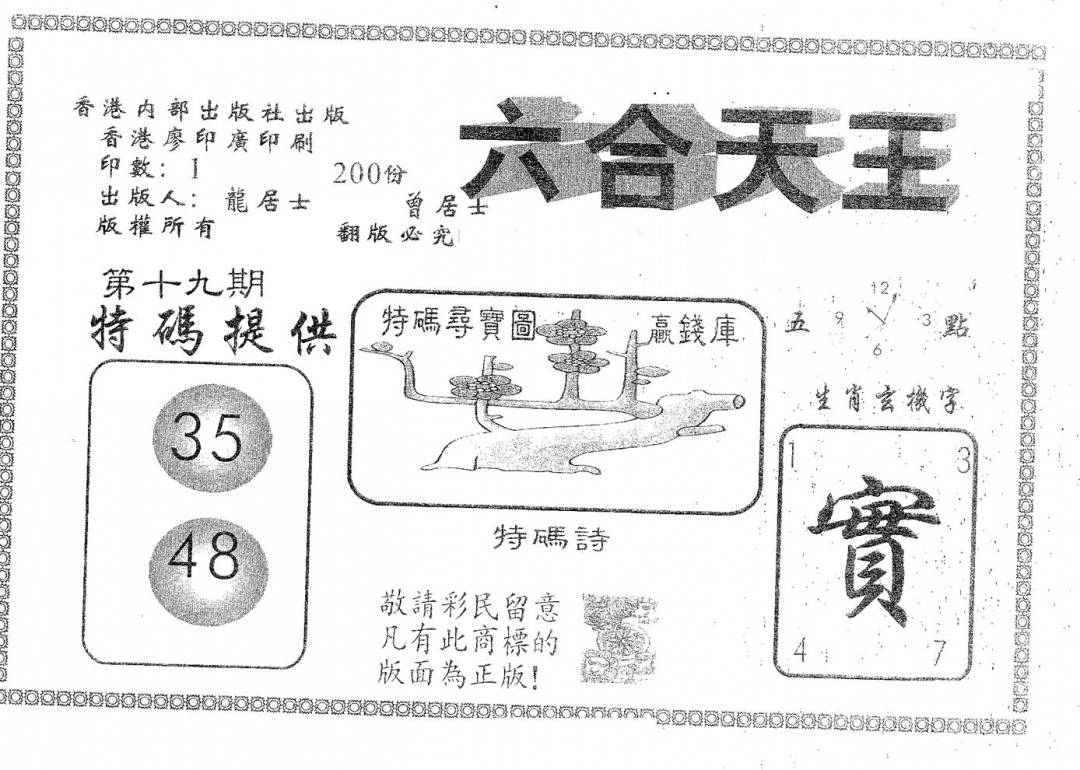 香港内部出版社出版
香港廖印廣印刷
印數: 1 200份
出版人: 龍居士 曾居士
版權所有 翻版必究
六合天王
第十九期
特碼提供
35
48
特碼尋寶圖 贏錢庫
特碼詩
敬請彩民留意
凡有此商標的
版面為正版!
五 點
12
9 3
6
生肖玄機字
1 3
實
4 7